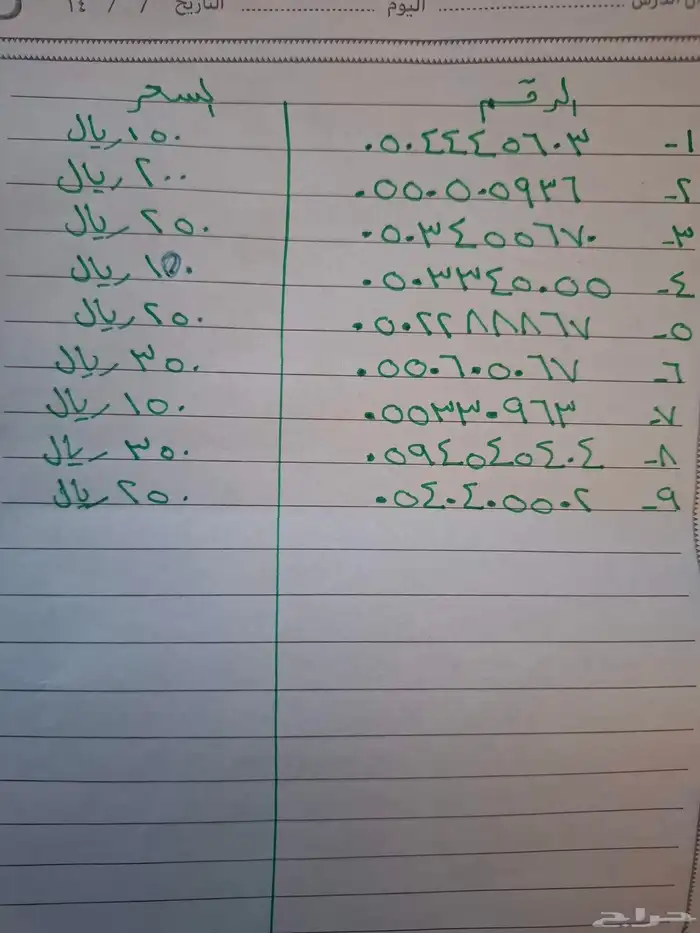 الدرس اليوم التاريخ / / ١٤
الرقم السعر
١- ٠٥٠٤٤٤٥٦٠٣ ١٥٠ ريال
٢- ٠٥٥٠٥٠٥٩٣٦ ٢٠٠ ريال
٣- ٠٥٠٣٤٥٥٦٧٠ ٢٥٠ ريال
٤- ٠٥٠٣٣٤٥٠٥٥ ١٥٠ ريال
٥- ٠٥٠٢٢٨٨٨٦٧ ٢٥٠ ريال
٦- ٠٥٥٠٦٠٥٠٦٧ ٣٥٠ ريال
٧- ٠٥٥٣٣٠٩٦٣ ١٥٠ ريال
٨- ٠٥٩٤٥٤٥٤٠٤ ٣٥٠ ريال
٩- ٠٥٤٠٤٠٥٥٠٢ ٢٥٠ ريال
حراج